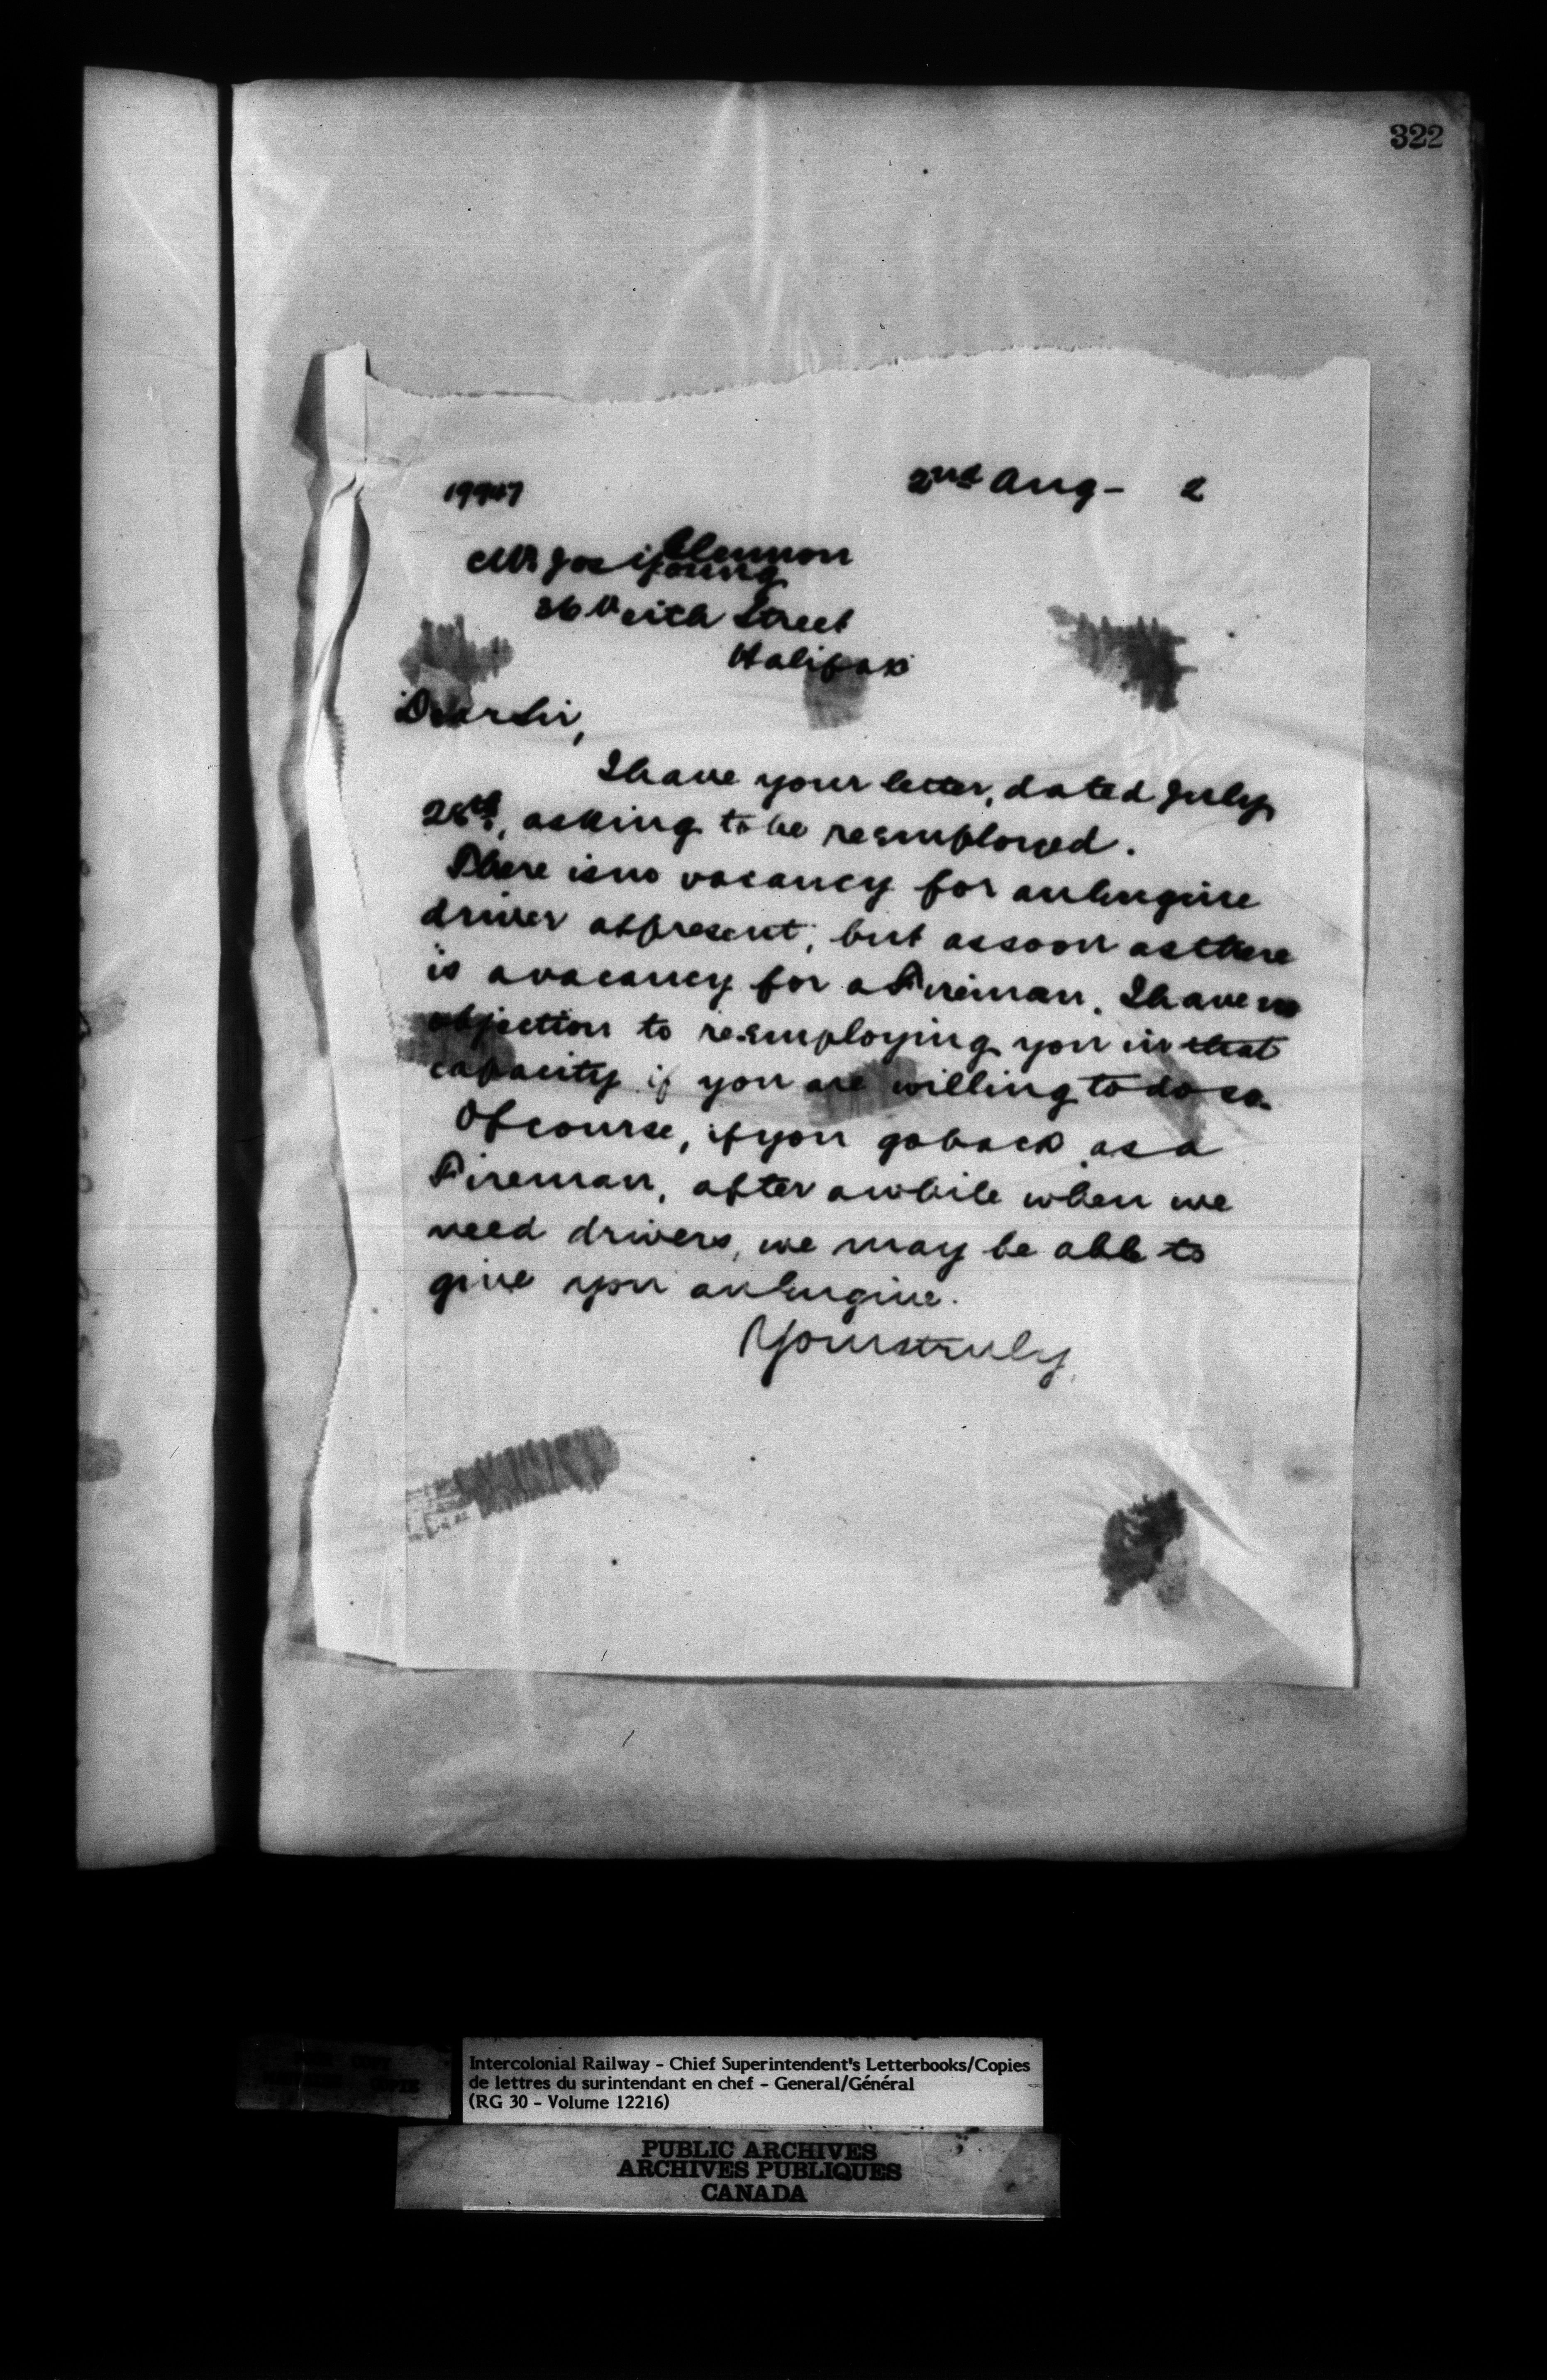 322
19947
2nd Aug - 2
Clennon
Mr Jos Young
36 Veith Street
Halifax
Dear Sir,
I have your letter, dated July
28th, asking to be reemployed.
There is no vacancy for an Engine
driver at present, but as soon as there
is a vacancy for a Fireman, I have no
objection to re-employing you in that
capacity if you are willing to do so.
Of course, if you go back as a
Fireman, after awhile when we
need drivers, we may be able to
give you an Engine.
Yours truly,
Intercolonial Railway - Chief Superintendent's Letterbooks/Copies
de lettres du surintendant en chef - General/Général
(RG 30 - Volume 12216)
PUBLIC ARCHIVES
ARCHIVES PUBLIQUES
CANADA